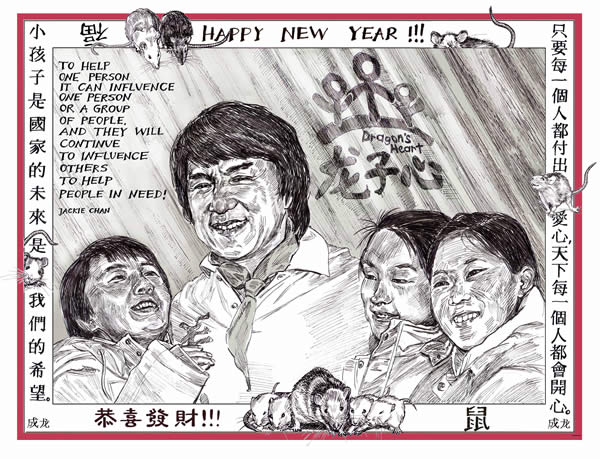 福
HAPPY NEW YEAR !!!
TO HELP
ONE PERSON
IT CAN INFLUENCE
ONE PERSON
OR A GROUP
OF PEOPLE,
AND THEY WILL
CONTINUE
TO INFLUENCE
OTHERS
TO HELP
PEOPLE IN NEED!
JACKIE CHAN
Dragon's
Heart
龙子心
小孩子是國家的未來是我們的希望。
成龙
只要每一個人都付出愛心,天下每一個人都會開心。
成龙
恭喜發財!!!
鼠